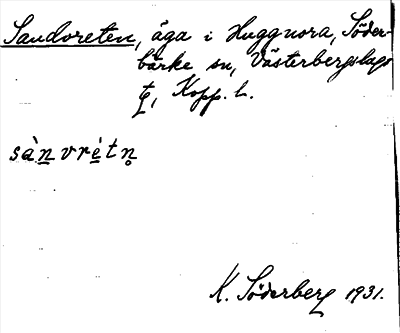 Sandvreten, äga i Huggnora, Söder-
bärke sn, Västerbergslags
tg, Kopp. L.
sànvrètn̥
K. Söderberg 1931.